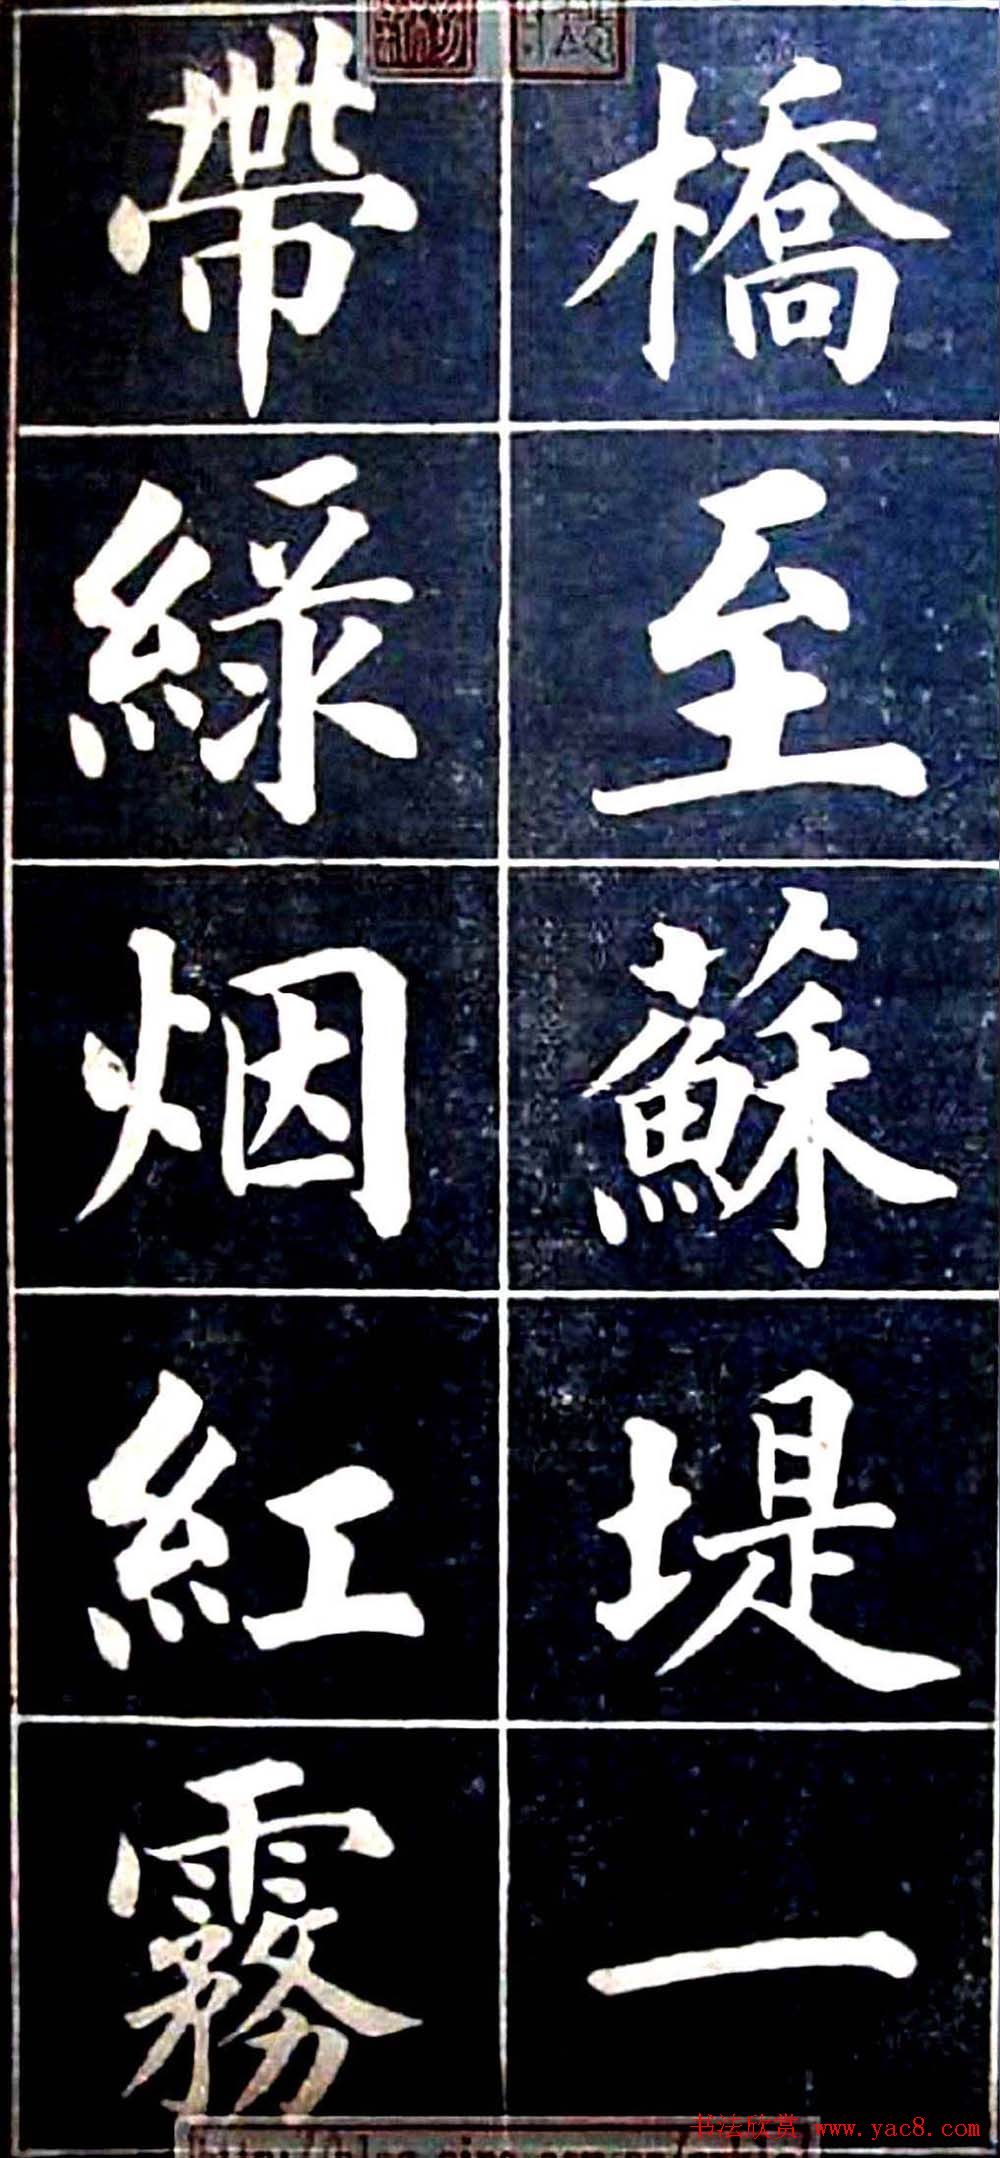 橋至蘇堤一
帶綠烟紅霧
书法欣赏 www.yac8.com